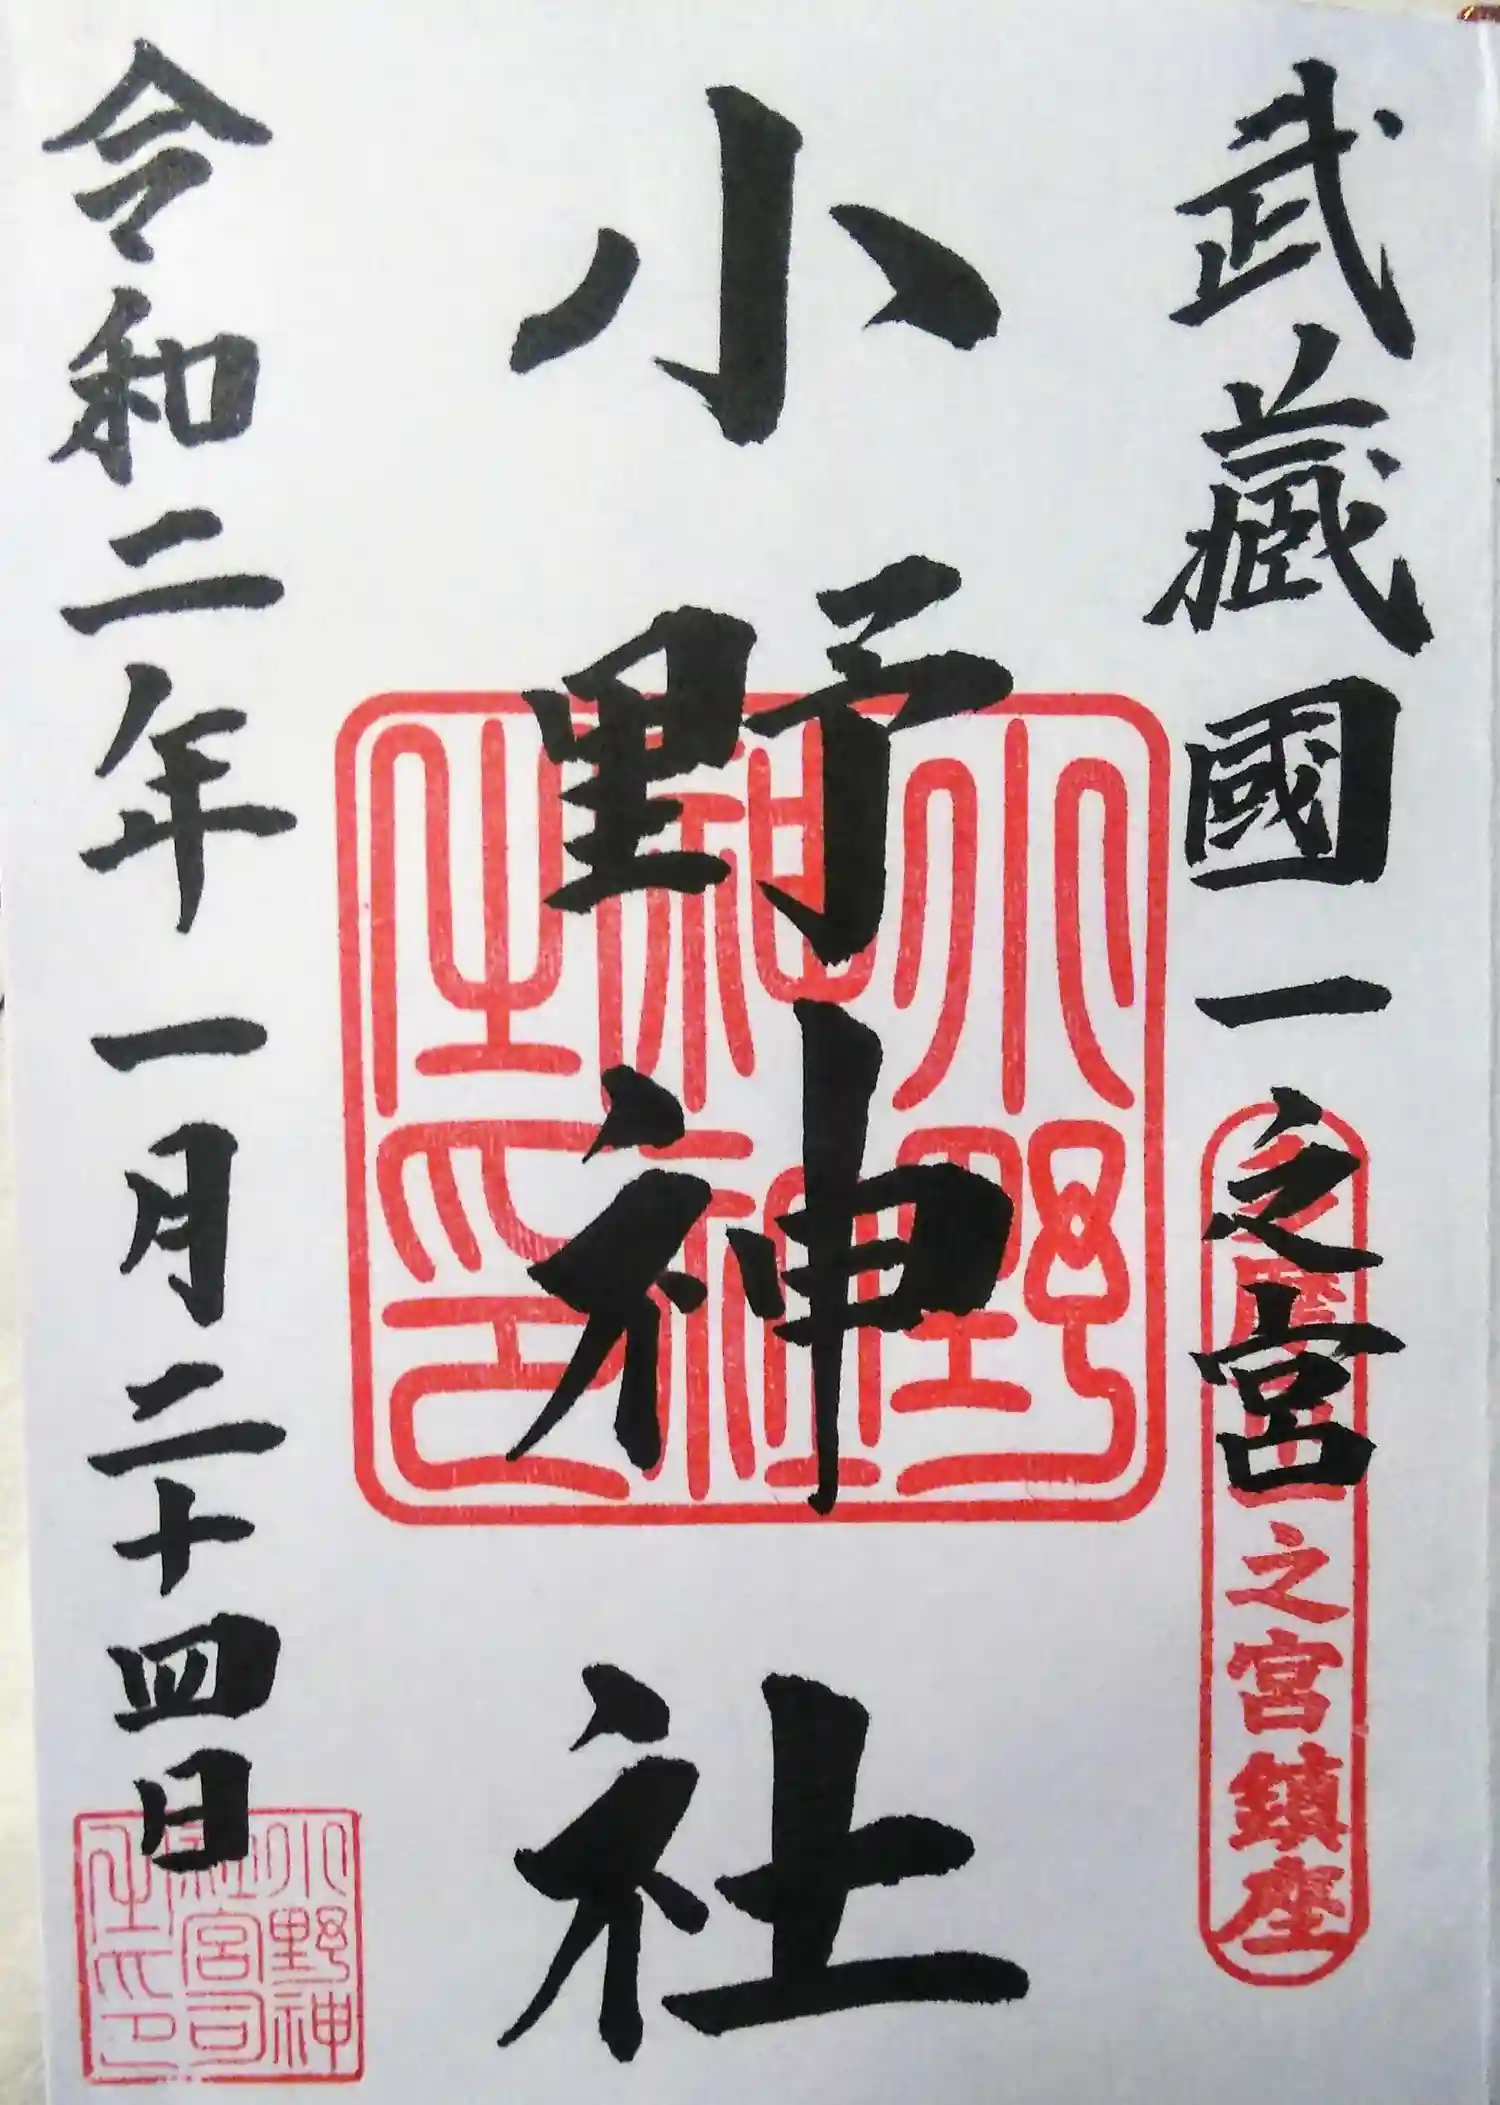 武藏國一之宮
之宮鎮座
小野神社
小野神社之印
令和二年一月二十四日
小野神社宮司之印